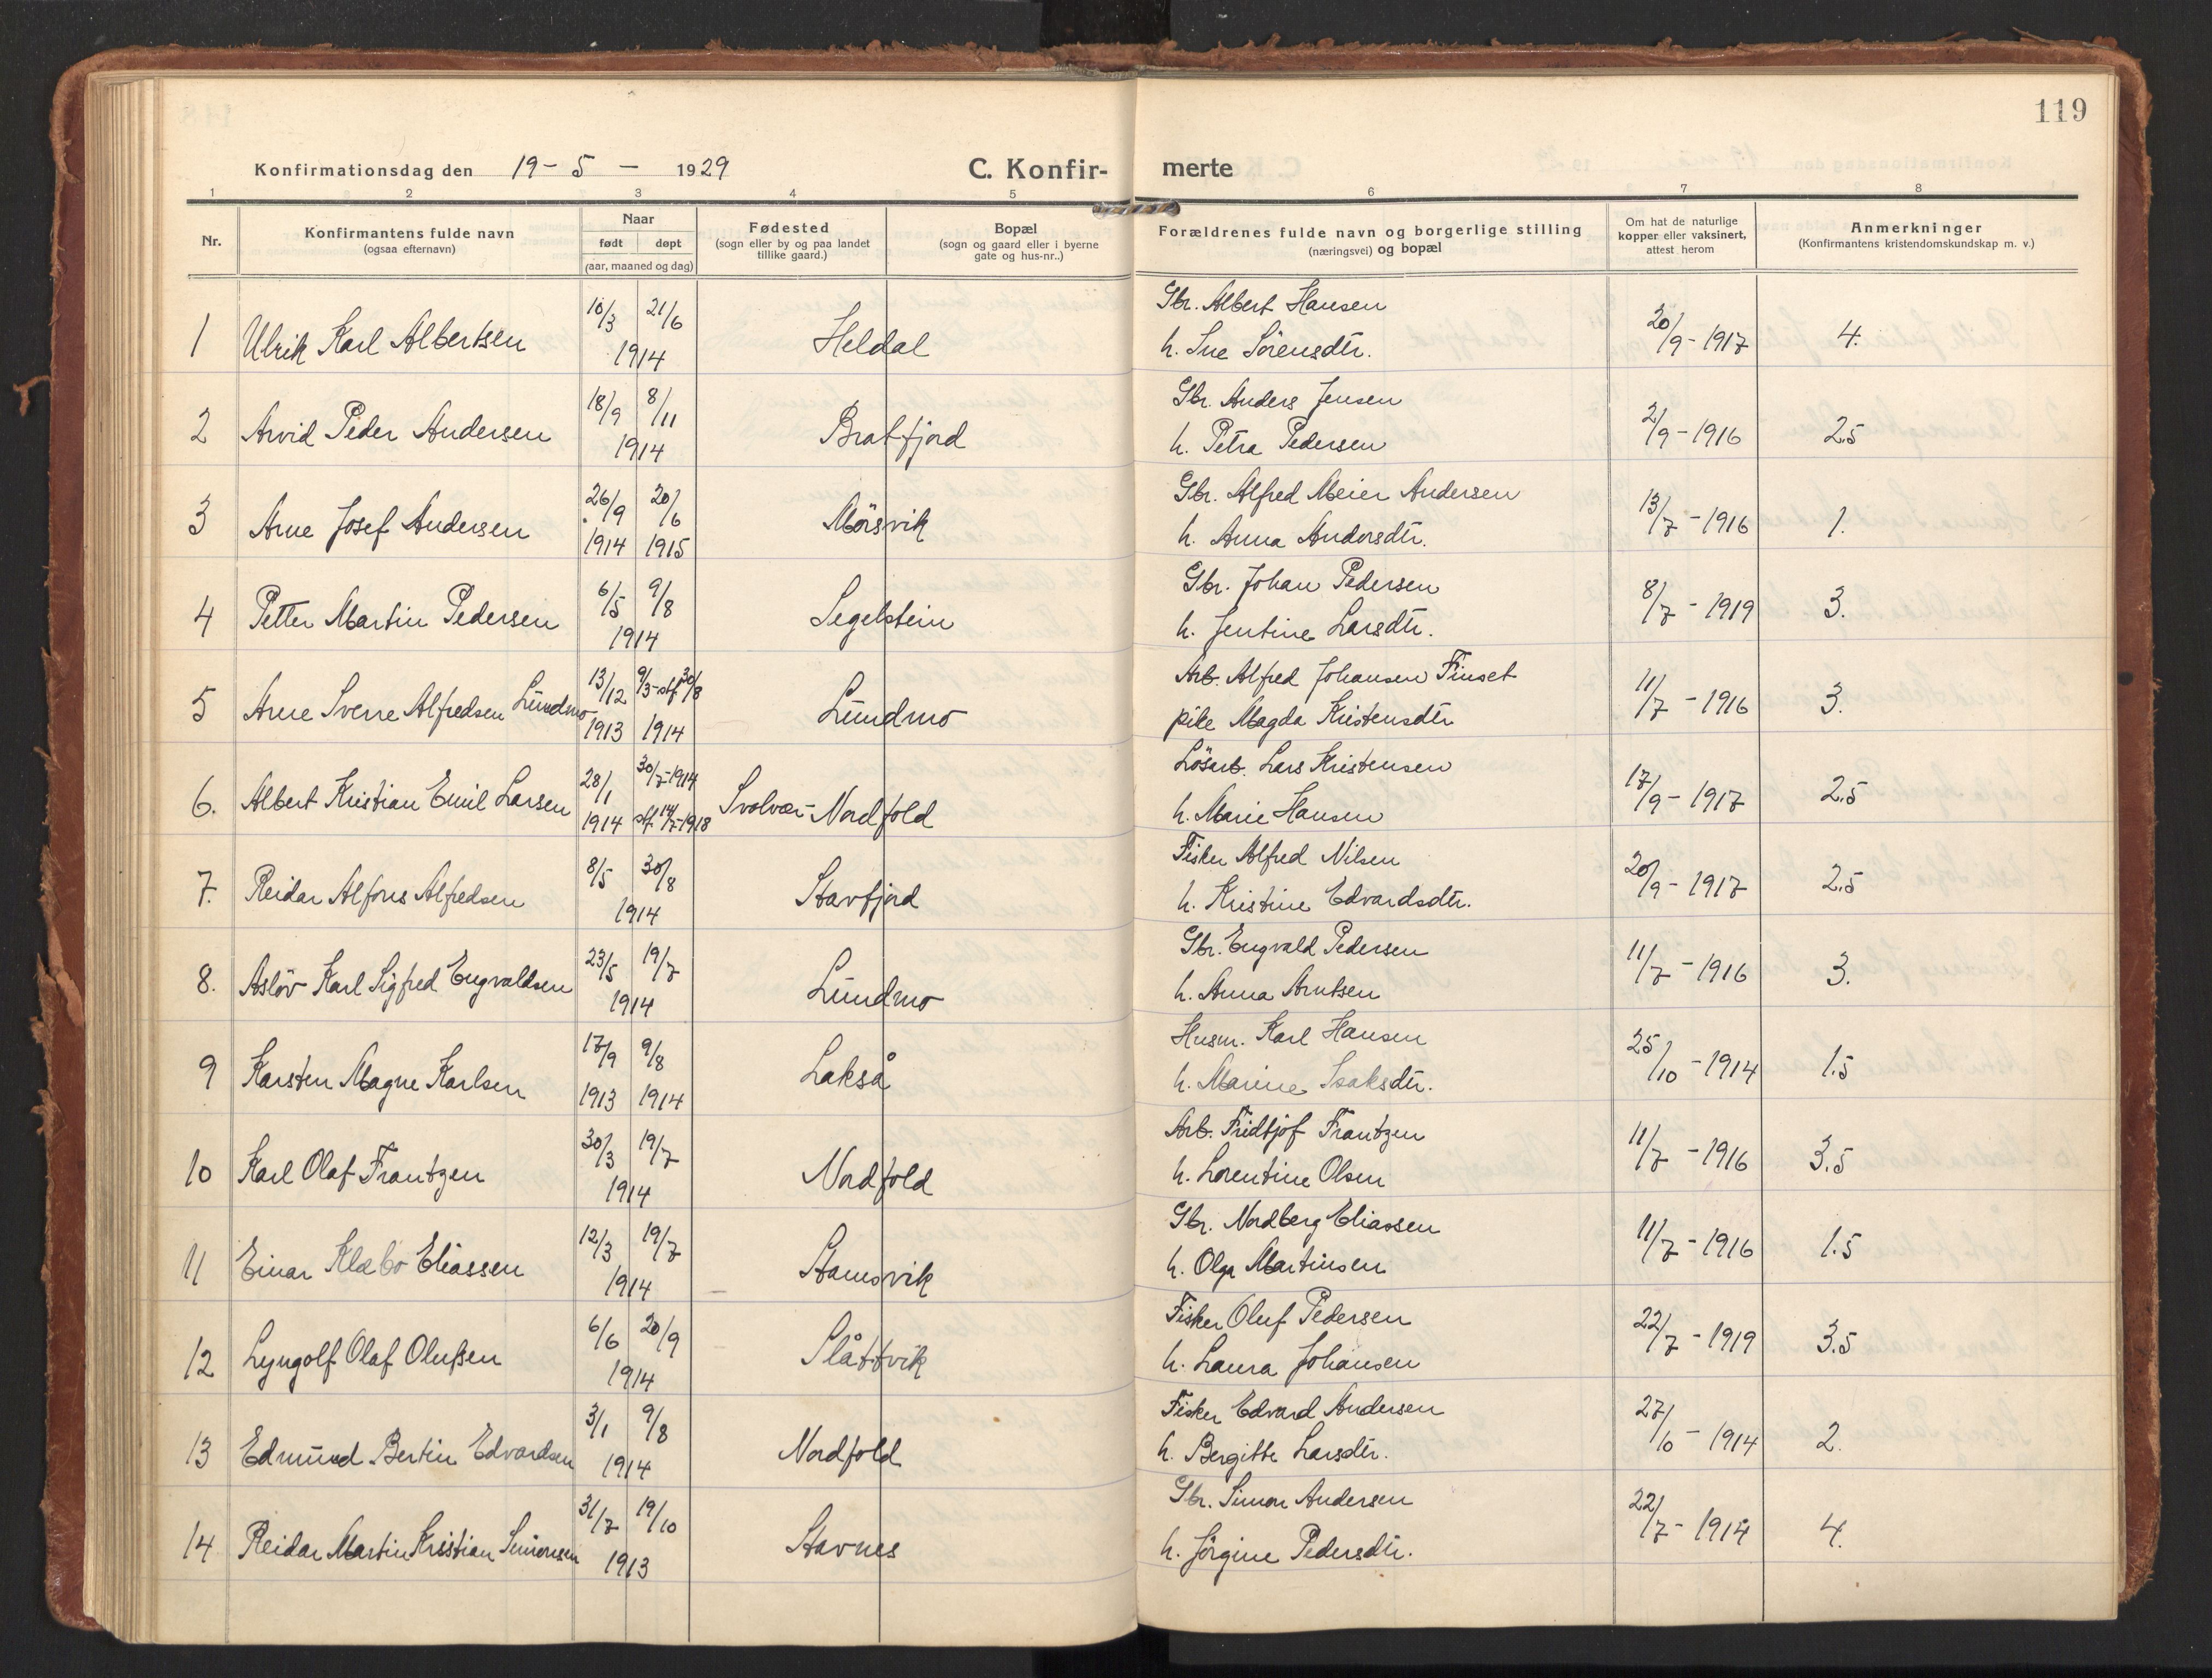 119
Konfirmationsdag den 19 - 5 - 1929 C. Konfir- merte
1 2 3 4 5 6 7 8
Nr.
Konfirmantens fulde navn
(ogsaa efternavn)
Naar
født døpt
(aar, maaned og dag)
Fødested
(sogn eller by og paa landet
tillike gaard.)
Bopæl
(sogn og gaard eller i byerne
gate og hus-nr..)
Forældrenes fulde navn og borgerlige stilling
(næringsvei) og bopæl
Om hat de naturlige
kopper eller vaksinert,
attest herom
Anmerkninger
(Konfirmantens kristendomskundskap m. v.)
1 Ulrik Karl Albertsen 10/3 21/6 1914 Heldal Gbr. Albert Hansen
h. Ine Sörensdtr. 20/9 - 1917 4.
2 Arvid Peder Andersen 18/9 8/11 1914 Brotfjord Gbr. Anders Jensen
h. Petra Pedersen 2/9 - 1916 2.5
3 Arne Josef Andersen 26/9 1914 20/6 1915 Mörsvik Gbr. Alfred Meier Andersen
h. Anna Andersdtr. 13/7 - 1916 1.
4 Petter Martin Pedersen 6/5 9/8 1914 Segelstein Gbr. Johan Pedersen
h. Jentine Larsdtr. 8/7 - 1919 3.
5 Arne Sverre Alfredsen Lundmo 13/12 1913 9/3 - stf 30/8 1914 Lundmo Arb. Alfred Johansen Finset
pike Magda Kristensdtr 11/7 - 1916 3.
6. Albert Kristian Emil Larsen 28/1 1914 30/7-1914 stf. 14/7-1918 Svolvær - Nordfold Lösarb. Lars Kristensen
h. Marie Hansen 17/9 - 1917 2.5
7. Reidar Alfons Alfredsen 8/5 30/8 1914 Stavfjord Fisker Alfred Nilsen
h. Kristine Edvardsdtr. 20/9 - 1917 2.5
8. Aslöv Karl Sigfred Engvaldsen 23/5 19/7 1914 Lundmo Gbr. Engvald Pedersen
h. Anna Arntsen 11/7 - 1916 3.
9 Karsten Magne Karlsen 17/9 1913 9/8 1914 Lakså Husm. Karl Hansen
h. Marine Isaksdtr. 25/10 - 1914 1.5
10 Karl Olaf Frantzen 30/3 19/7 1914 Nordfold Arb. Fridtjof Frantzen
h. Lorentine Olsen 11/7 - 1916 3.5
11 Einar Klæbo Eliassen 12/3 19/7 1914 Stamsvik Gbr. Nordberg Eliassen
h. Olga Martinsen 11/7 - 1916 1.5
12 Lyngolf Olaf Olufsen 6/6 20/9 1914 Slåttvik Fisker Oluf Pedersen
h. Laura Johansen 22/7 - 1919 3.5
13 Edmund Bertin Edvardsen 3/1 9/8 1914 Nordfold Fisker Edvard Andersen
h. Bergitte Larsdtr. 27/10 - 1914 2.
14 Reidar Martin Kristian Simonsen 31/7 19/10 1913 Stavnes Gbr. Simon Andersen
h. Jörgine Pedersdtr. 22/7 - 1914 4.